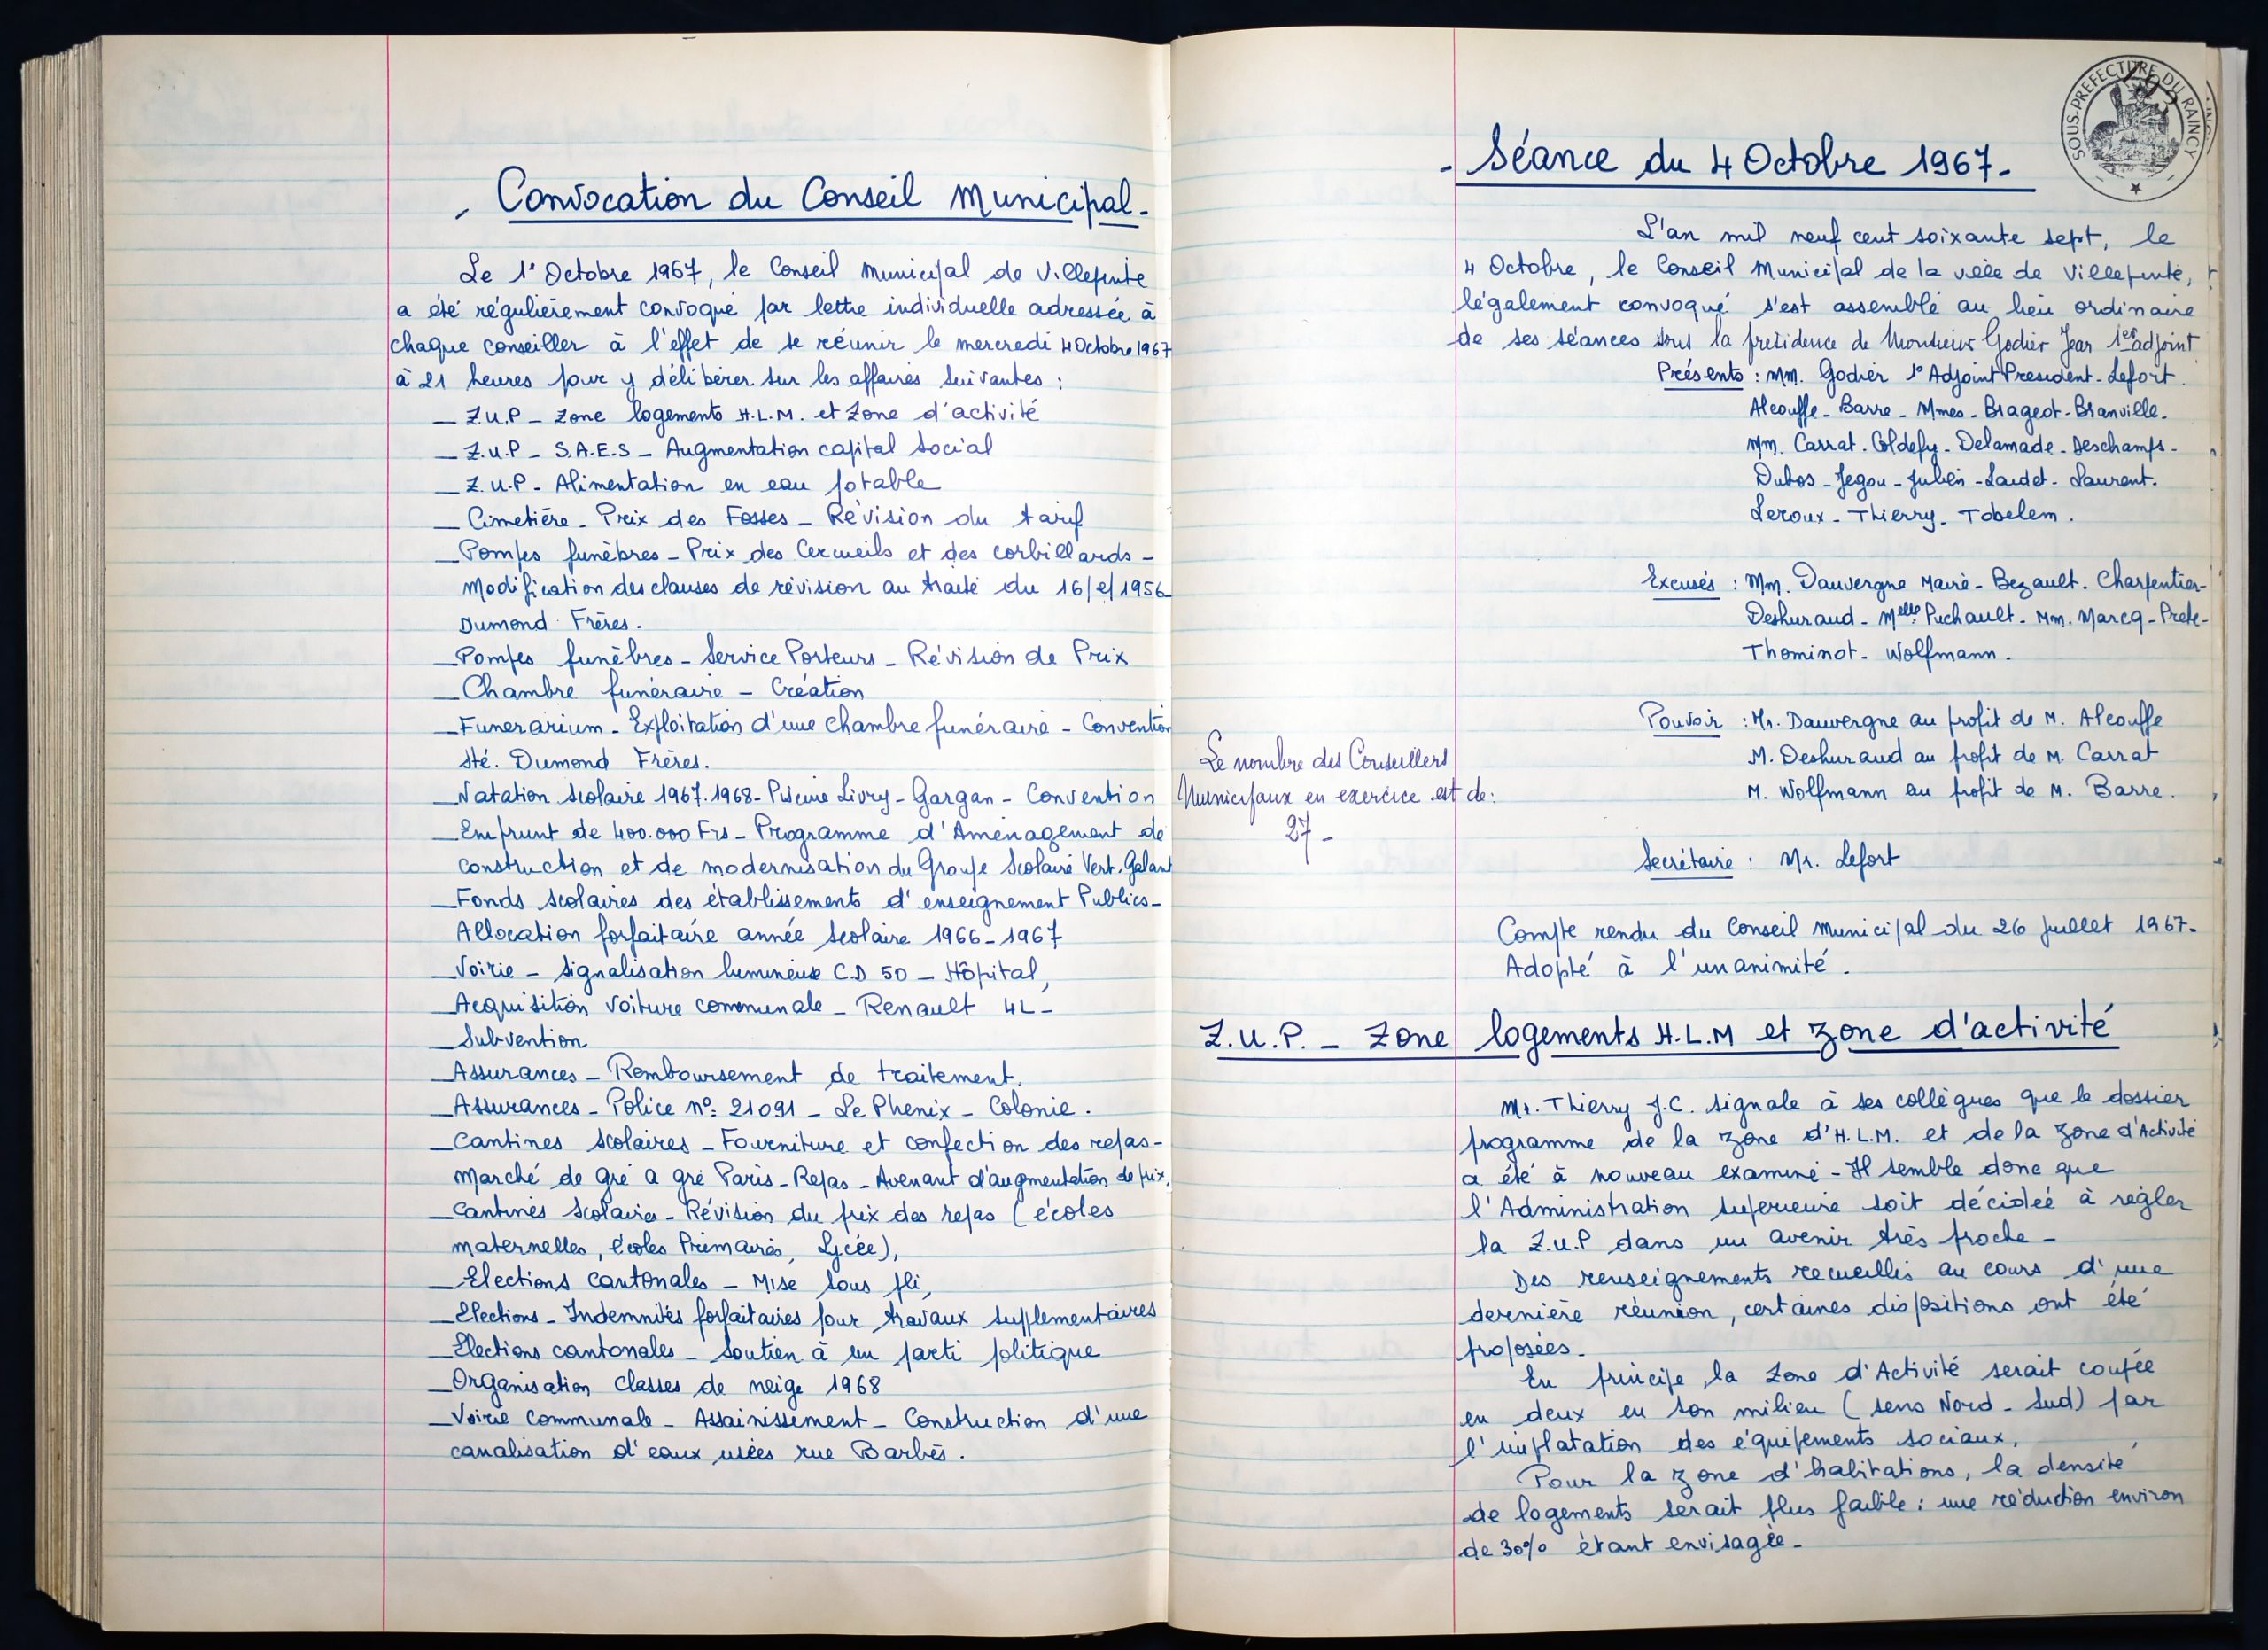 - Convocation du Conseil Municipal -
Le 1° Octobre 1967, le Conseil Municipal de Villepinte
a été régulièrement convoqué par lettre individuelle adressée à
chaque conseiller à l'effet de se réunir le mercredi 4 Octobre 1967
à 21 heures pour y délibérer sur les affaires suivantes :
_ Z.U.P _ Zone logements H.L.M. et Zone d'activité
_ Z.U.P _ S.A.E.S _ Augmentation capital social
_ Z.U.P - Alimentation en eau potable
_ Cimetière - Prix des Fosses _ Révision du tarif
_ Pompes funèbres _ Prix des Cercueils et des corbillards -
Modification des clauses de révision au traité du 16/2/1956
Dumond Frères.
_ Pompes funèbres - Service Porteurs _ Révision de Prix
_ Chambre funéraire - Création
_ Funerarium - Exploitation d'une chambre funéraire - Convention
Sté. Dumond Frères.
_ Natation scolaire 1967.1968 - Piscine Livry-Gargan - Convention
_ Emprunt de 400.000 Frs - Programme d'Aménagement de
construction et de modernisation du Groupe Scolaire Vert-Galant
_ Fonds scolaires des établissements d'enseignement Publics -
Allocation forfaitaire année scolaire 1966-1967
_ Voirie - Signalisation lumineuse C.D 50 - Hôpital,
_ Acquisition voiture communale _ Renault 4L -
_ Subvention
_ Assurances _ Remboursement de traitement.
_ Assurances - Police n°: 21091 - Le Phenix - Colonie.
_ Cantines scolaires _ Fourniture et confection des repas -
Marché de gré à gré Paris-Repas - Avenant d'augmentation de prix,
_ Cantines scolaires - Révision du prix des repas (écoles
maternelles, écoles Primaires, Lycée),
_ Elections cantonales - Mise sous pli,
_ Elections - Indemnités forfaitaires pour travaux supplémentaires
_ Elections cantonales _ soutien à un parti politique
_ Organisation classes de neige 1968
_ Voirie communale - Assainissement - Construction d'une
canalisation d'eaux usées rue Barbès.
SOUS-PREFECTURE DU RAINCY
- Séance du 4 Octobre 1967 -
L'an mil neuf cent soixante sept, le
4 Octobre, le Conseil Municipal de la ville de Villepinte,
légalement convoqué s'est assemblé au lieu ordinaire
de ses séances sous la présidence de Monsieur Godier Jean 1er adjoint
Présents : MM. Godier 1° Adjoint Président - Lefort.
Alcouffe - Barre - Mmes - Brageot - Branville.
MM. Carrat - Coldefy - Delamade - Deschamps -
Dubos - Jegou - Julien - Laudet - Laurent.
Leroux - Thierry - Tobelem.
Excusés : MM. Dauvergne Maire - Bezault. Charpentier -
Deshuraud - Melle Puchault - MM. Marcq - Prete -
Thominot - Wolfmann.
Pouvoir : Mr. Dauvergne au profit de M. Alcouffe
M. Deshuraud au profit de M. Carrat
M. Wolfmann au profit de M. Barre.
Le nombre des Conseillers
Municipaux en exercice est de :
27 -
Secrétaire : Mr. Lefort
Compte rendu du Conseil Municipal du 26 Juillet 1967.
Adopté à l'unanimité.
Z.U.P. - Zone logements H.L.M et zone d'activité
Mr. Thierry J.C. signale à ses collègues que le dossier
programme de la zône d'H.L.M. et de la zone d'Activité
a été à nouveau examiné - Il semble donc que
l'Administration supérieure soit décidée à régler
la Z.U.P dans un avenir très proche -
Des renseignements recueillis au cours d'une
dernière réunion, certaines dispositions ont été
proposées -
En principe, la Zone d'Activité serait coupée
en deux en son milieu (sens Nord - Sud) par
l'implatation des équipements sociaux.
Pour la zone d'habitations, la densité
de logements serait plus faible : une réduction environ
de 30% étant envisagée -